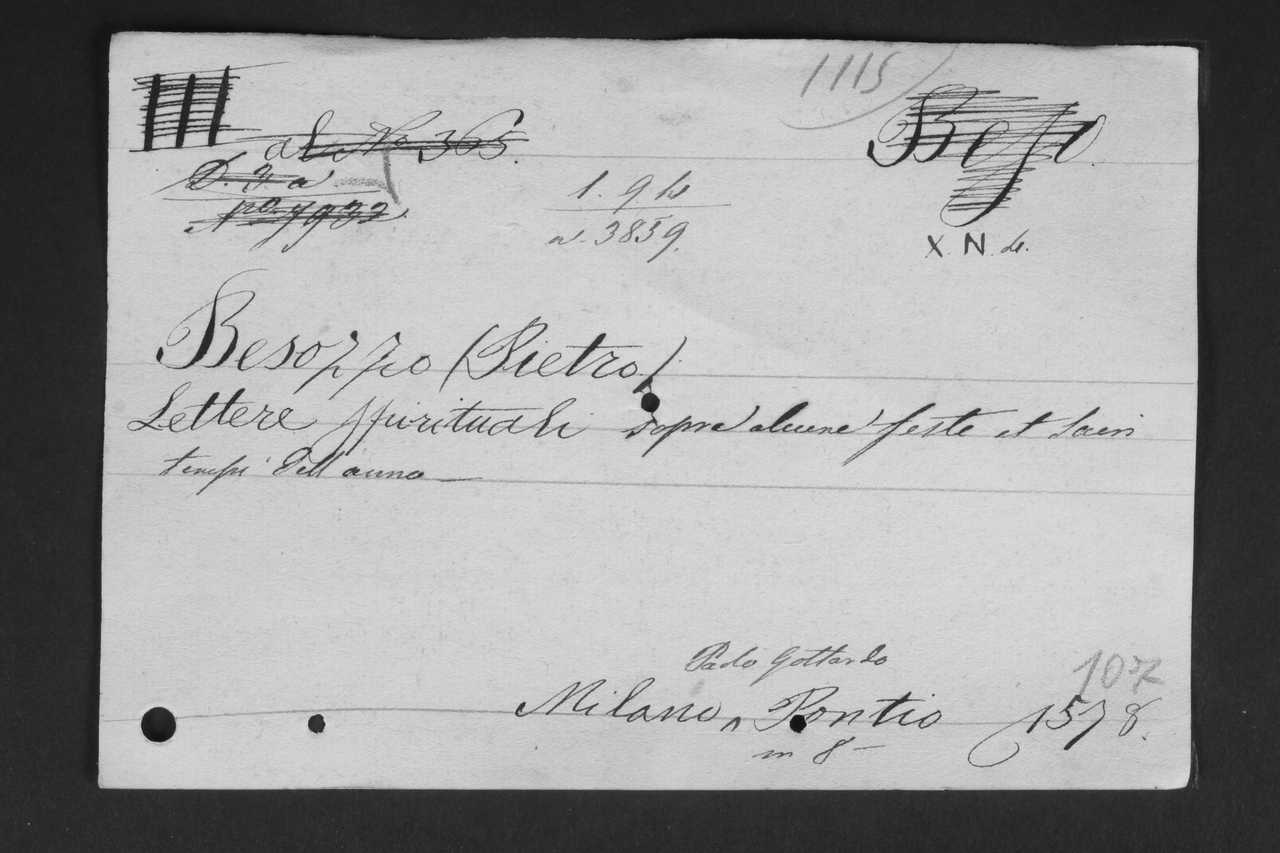 1115
III
al No 365.
D. 3 a
no. 7932.
1. 9. 4
n. 3859.
X. N. 4.
Besozzo (Pietro)
Lettere spirituali sopra alcune feste et sacri
tempi dell'anno
Paolo Gottardo
107
Milano, Pontio 1578.
in 8-